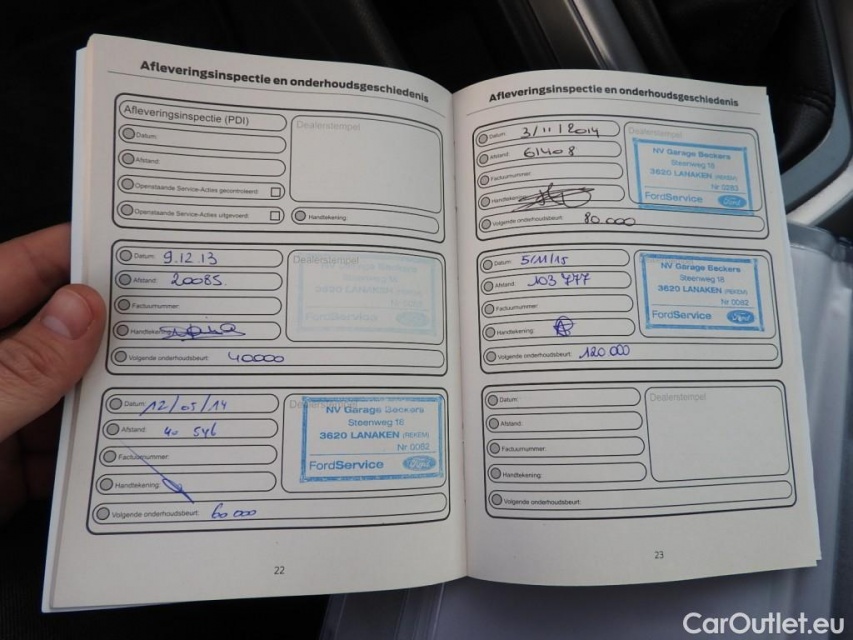 Afleveringsinspectie en onderhoudsgeschiedenis
Afleveringsinspectie (PDI)
Dealerstempel
Datum:
Afstand:
Openstaande Service-Acties gecontroleerd
Openstaande Service-Acties uitgevoerd:
Handtekening:
Datum: 9.12.13
Dealerstempel
Afstand: 20085.
NV Garage Beckers
Steenweg 18
3620 LANAKEN
FordService
Factuurnummer:
Handtekening:
Volgende onderhoudsbeurt: 40000
Datum: 12/05/14
Afstand: 40 546
NV Garage Beckers
Steenweg 18
3620 LANAKEN (REKEM)
Nr 0082
FordService Ford
Factuurnummer:
Handtekening:
Volgende onderhoudsbeurt: 60 000
22
Afleveringsinspectie en onderhoudsgeschiedenis
Datum: 3/11/2014
Dealerstempel
Afstand: 61408
NV Garage Beckers
Steenweg 18
3620 LANAKEN (REKEM)
Nr 0082
FordService Ford
Factuurnummer:
Handtekening:
Volgende onderhoudsbeurt: 80.000
Datum: 5/11/15
Afstand: 103 777
NV Garage Beckers
Steenweg 18
3620 LANAKEN (REKEM)
Nr 0082
FordService Ford
Factuurnummer:
Handtekening:
Volgende onderhoudsbeurt: 120 000
Datum:
Dealerstempel
Afstand:
Factuurnummer:
Handtekening:
Volgende onderhoudsbeurt:
23
CarOutlet.eu